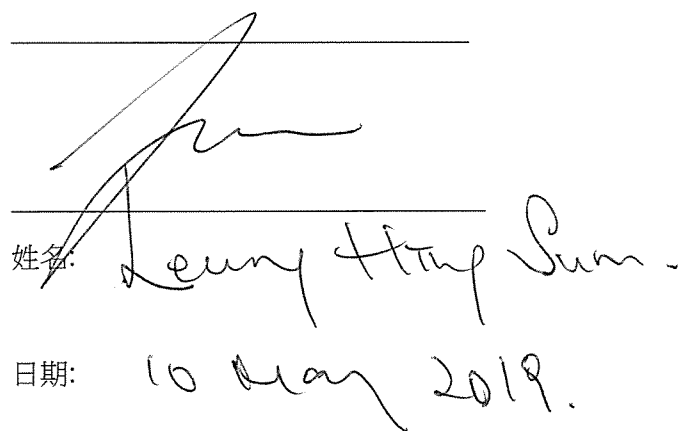 姓名: Leung Hing Sum.
日期: 10 May 2019.